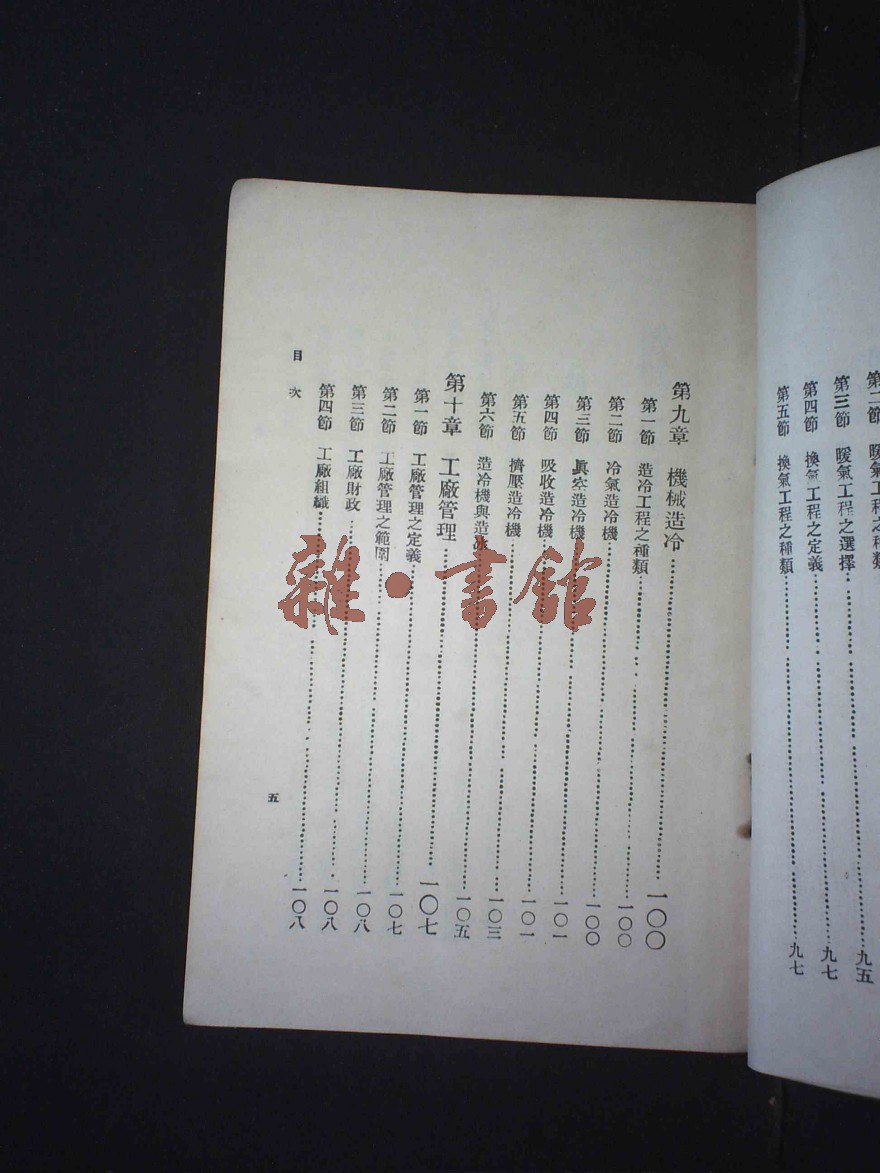 第二節　暖氣工程之種類
第三節　暖氣工程之選擇
九五
第四節　換氣工程之定義
九七
第五節　換氣工程之種類
九七
第九章　機械造冷
一〇〇
第一節　造冷工程之種類
一〇〇
第二節　冷氣造冷機
一〇〇
第三節　眞空造冷機
一〇一
第四節　吸收造冷機
一〇一
第五節　擠壓造冷機
一〇三
第六節　造冷機與造冰
一〇五
第十章　工廠管理
一〇七
第一節　工廠管理之定義
一〇七
第二節　工廠管理之範圍
一〇八
第三節　工廠財政
一〇八
第四節　工廠組織
一〇八
目次
五
雜·書館